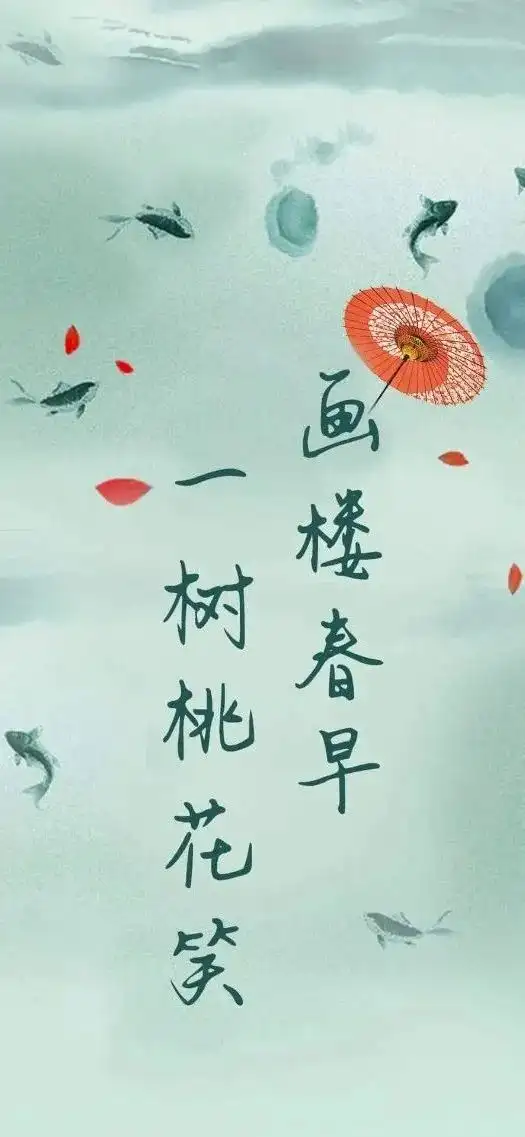 画楼春早
一树桃花笑